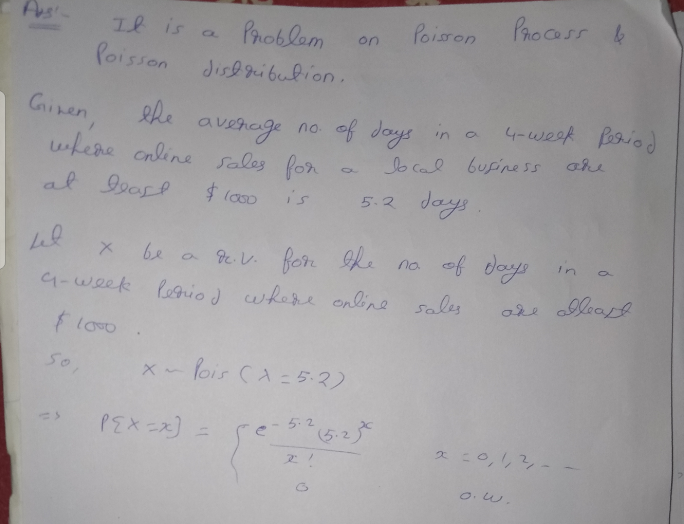 Ans:- It is a Problem on Poisson Process &
Poisson distribution.
Given, the average no. of days in a 4-week Period
where online sales for a local business are
at least $1000 is 5.2 days.
Let X be a r.v. for the no. of days in a
4-week Period where online sales are atleast
$1000.
So, X ~ Pois (λ = 5.2)
=> P{X=x} = { e^{-5.2} (5.2)^x / x!    x = 0,1,2, - -
0    o.w.